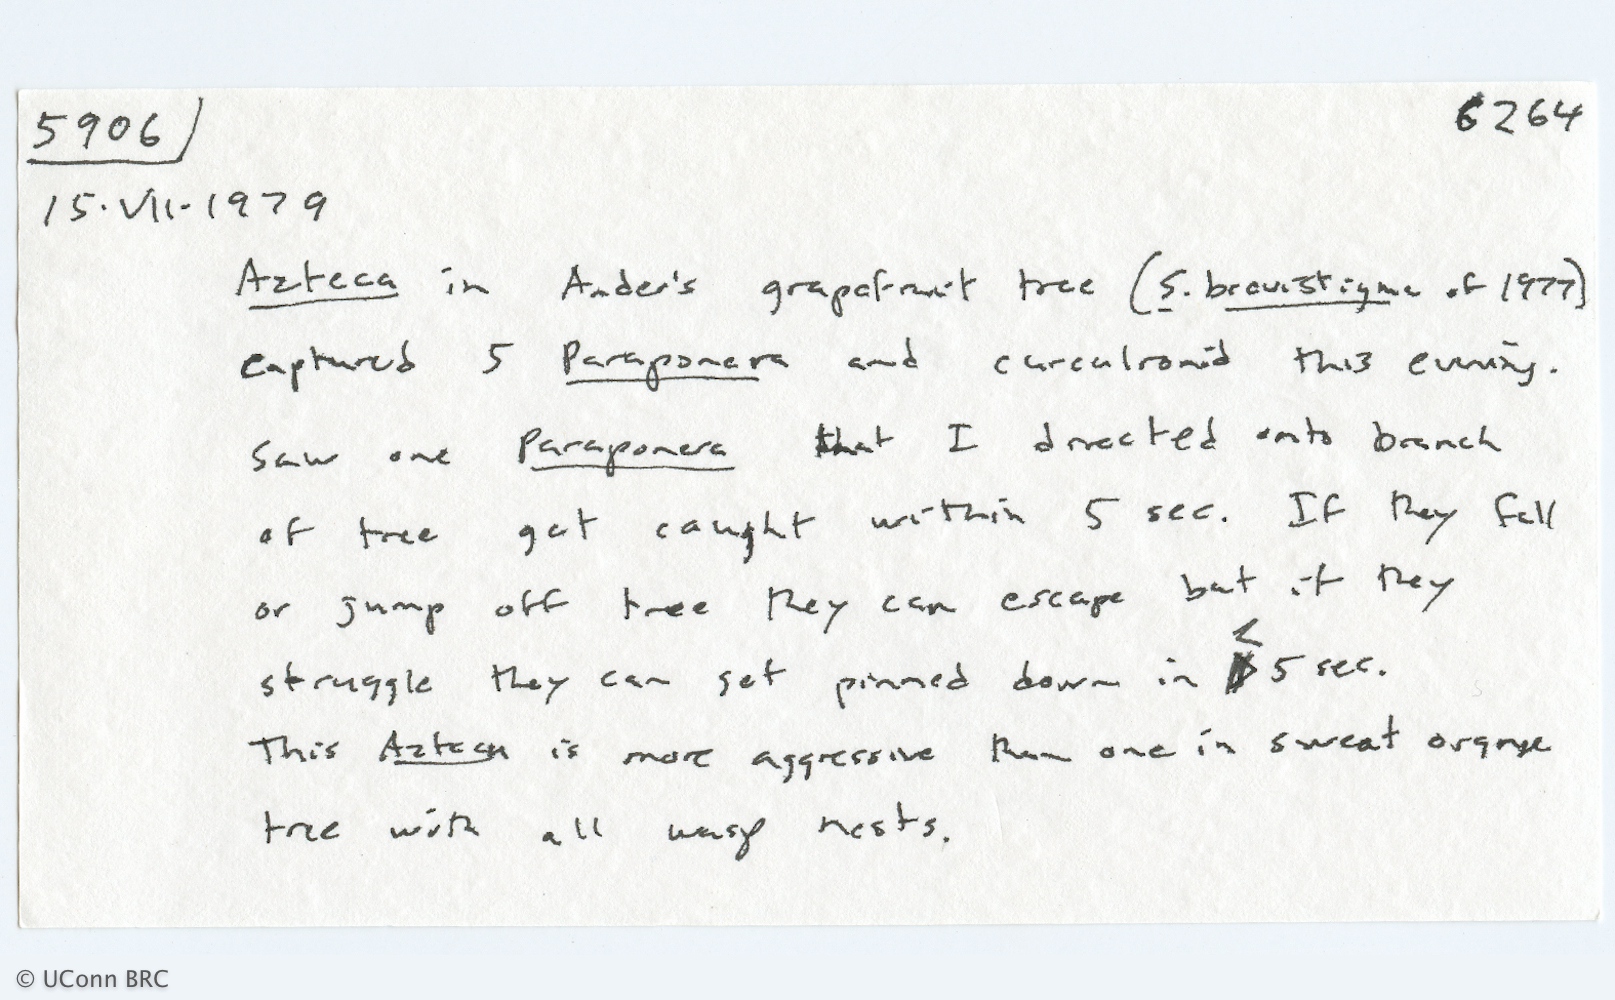 5906
6264
15.VII.1979
Azteca in Ander's grapefruit tree (S. brevistigma of 1977)
captured 5 Paraponera and curculionid this evening.
Saw one Paraponera that I directed onto branch
of tree get caught within 5 sec. If they fall
or jump off tree they can escape but if they
struggle they can get pinned down in < 5 sec.
This Azteca is more aggressive than one in sweat orange
tree with all wasp nests.
© UConn BRC